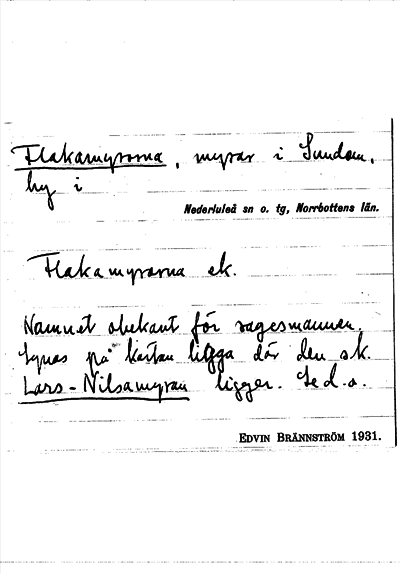 Flakamyrorna, myrar i Sundom,
by i
Nederluleå sn o. tg, Norrbottens län.
Flakamyrarna ek.
Namnet obekant för sagesmannen.
Synas på kartan ligga där den s.k.
Lars-Nilsamyran ligger. Se d. o.
EDVIN BRÄNNSTRÖM 1931.